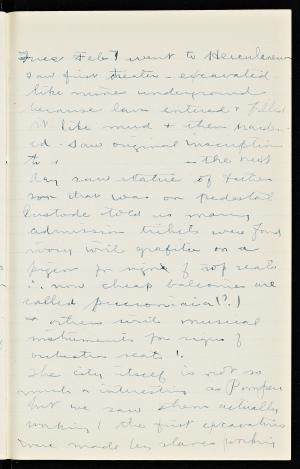 Tues Feb 7 went to Herculaneum
saw first theater - excavated
like mine underground
because lava entered & filled
it like mud & then harden-
ed - saw original inscription
to - the next
day saw statue of
son that was on pedestal
Custode told us many
admission tickets were found
ivory with grafitie on a
pigeon for sign of top seats
∴ now cheap balconies are
called (?)
& others with musical
instruments for signs of
orchestra seats!
The city itself is not so
much a interesting as Pompeii
but we saw them actually
working! the first excavations
were made by slaves working